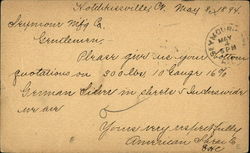 Hotchkissville Ct. May 8, 1894.
Seymour Mfg Co.
Gentlemen,
Please give us your bottom
quotations on 300 lbs 10 Gauge 16%
German Silver in sheets 5 in wide
Yours very respectfully
American Shear Co.
SEYMOUR
MAY